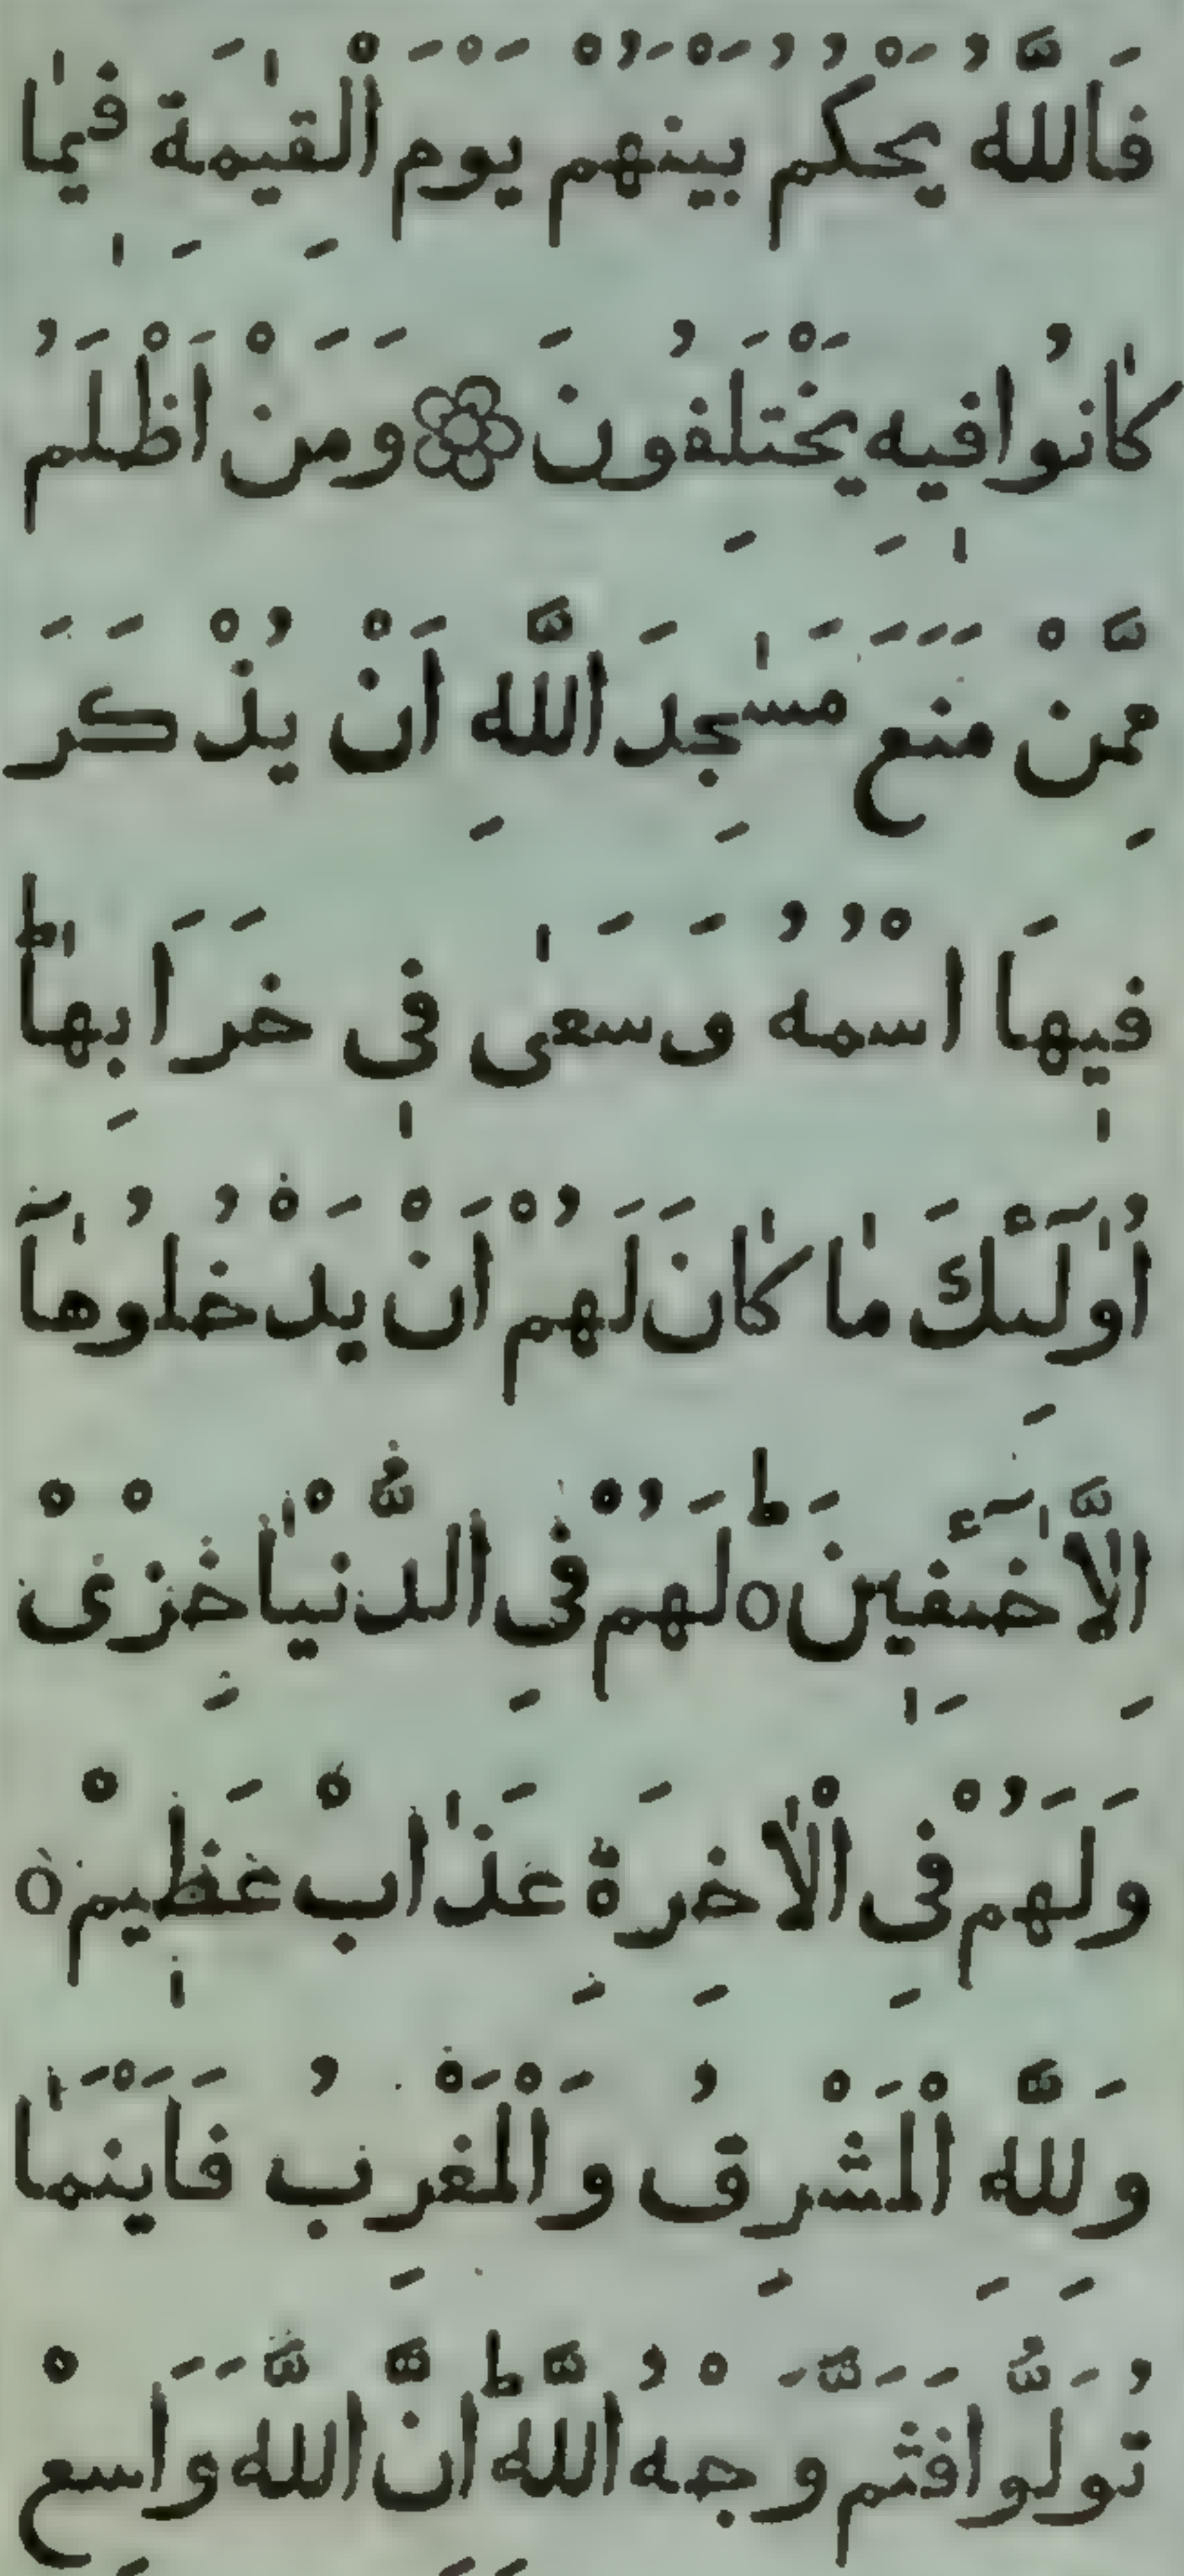 فَاللّٰهُ يَحْكُمُ بَيْنَهُمْ يَوْمَ الْقِيٰمَةِ فِيْمَا
كَانُوْا فِيْهِ يَخْتَلِفُوْنَ وَمَنْ اَظْلَمُ
مِمَّنْ مَنَعَ مَسٰجِدَ اللّٰهِ اَنْ يُذْكَرَ
فِيْهَا اسْمُهُ وَسَعٰى فِيْ خَرَابِهَا ؕ
اُولٰٓئِكَ مَا كَانَ لَهُمْ اَنْ يَدْخُلُوْهَآ
اِلَّا خَآئِفِيْنَ ؕ o لَهُمْ فِي الدُّنْيَا خِزْىْ
وَلَهُمْ فِي الْاٰخِرَةِ عَذَابْ عَظِيْمْ o
وَلِلّٰهِ الْمَشْرِقُ وَالْمَغْرِبُ فَاَيْنَمَا
تُوَلُّوْا فَثَمَّ وَجْهُ اللّٰهِ ؕ اِنَّ اللّٰهَ وَاسِعْ